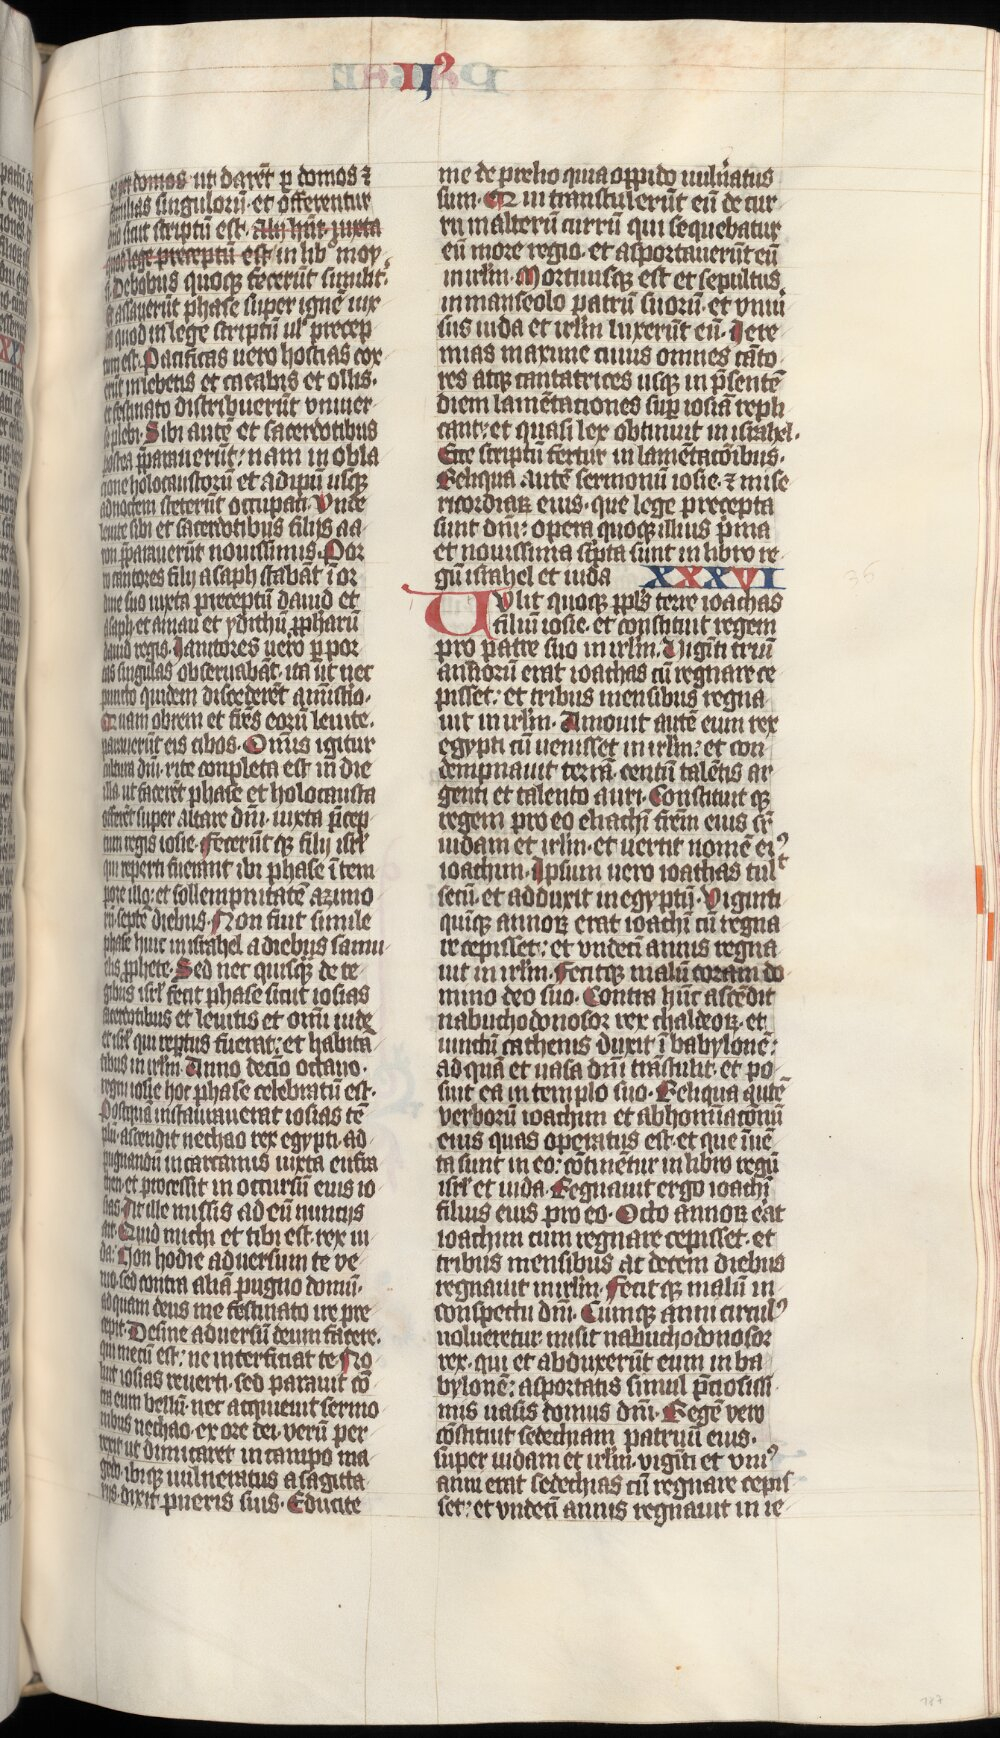 IIꝰ
per domos ut darēt ꝑ domos ⁊
familias singulorū · et offerentur
dno sicut scriptū est · Alij hn̄t · iuxta
quod lege preceptū est · in libº moy
si · De bobus quoqꝫ fecerūt similit̾ ·
Et assauerūt phase super ignē iux
ta quod in lege scriptū ul̾ precep
tum est · Pacificas uero hostias cox
erūt in lebetis et cacabis et ollis ·
et festinato distribuerūt vniuer
se plebi · Sibi autē et sacerdotibus
postea p̄parauerūt : nam in obla
cione holocaustorū et adipū usqꝫ
ad noctem steterūt occupati · Vnde
leuite sibi et sacerdotibus filijs aa
ron p̄parauerūt nouissimis · Por
ro cantores filij asaph stabāt ī or
dine suo iuxta preceptū dauid et
asaph · et aman et ydithū ꝓpharū
dauid regis · Ianitores uero ꝑ por
tas singulas obseruabāt · ita ut nec
puncto quidem discederēt a mīstio ·
Quam obrem et frēs eorū leuite ·
parauerūt eis cibos · Om̄is igitur
cultura dn̄i · rite conpleta est in die
illa · ut facerēt phase et holocausta
offerēt super altare dn̄i · iuxta p̄cep
tum regis iosie · Fecerūt qꝫ filij isrl̾
qui reperti fuerunt ibi phase ī tem
pore illo : et sollempnitatē azimo
rū · septē diebus · Non fuit simile
phase huic in israhel a diebus samu
elis ꝓphete · Sed nec quisqꝫ de re
gibus isrl̾ fecit phase sicut iosias
sacerdotibus et leuitis et om̄i iude
et isrl̾ qui rep̄tus fuerat : et habita
tibus in irl̄m · Anno decio octauo ·
regni iosie hoc phase celebratū est ·
Postquā instaurauerat iosias tē
plū · ascendit nechao rex egypti · ad
pugnandū in carcamis iuxta eufra
then · et processit in occursū eius io
sias · At ille missis ad eū nuncijs
ait · Quid michi et tibi est · rex iu
da : Non hodie aduersum te ve
nio · sed contra aliā pugno domū ·
ad quam deus me festinato ire pre
cepit · Desine aduersū deum facere ·
qui mecū est : ne interficiat te · No
luit iosias reuerti · sed parauit cō
tra eum bellū · nec acquieuit sermo
nibus nechao · ex ore dei · verū per
rexit ut dimicaret in campo ma
gedo · ibiqꝫ uulneratus a sagitta
rijs · dixit pueris suis · Educite
me de prelio quia oppido uuln̄atus
sum · Qui transtulerūt eū de cur
ru in alterū currū qui sequebatur
eū more regio · et asportauerūt eū
in irl̄m · Mortuusqꝫ est et sepultus
in mauseolo patrū suorū · et vniū
sus iuda et irl̄m luxerūt eū · Iere
mias maxime cuius omnes cāto
res atqꝫ cantatrices usqꝫ in p̄sentē
diem lamētationes suꝑ iosiā repli
cant : et quasi lex obtinuit in israhel ·
Ecce scriptū fertur in lamētacōibus ·
Reliqua autē sermonū iosie · ⁊ mise
ricordiaꝝ eius · que lege precepta
sunt dn̄i : opera quoqꝫ illius p̄ma
et nouissima sc̄pta sunt in libro re
gū israhel et iuda XXXVI
36
Tulit quoqꝫ ppl̄s terre ioachas
filiū iosie · et constituit regem
pro patre suo in irl̄m · Viginti triū
annorū erat ioachas cū regnare ce
pisset : et tribus mensibus regna
uit in irl̄m · Amouit autē eum rex
egypti cū uenisset in irl̄m : et con
dempnauit terrā · centū talētis ar
genti et talento auri · Constituit qꝫ
regem pro eo eliachī frēm eius sr̄
iudam et irl̄m · et uertit nomē eiꝰ
ioachim · Ipsum uero ioachas tul̾t
secū · et adduxit in egyptū · Viginti
quīqꝫ annoꝝ erat ioachī cū regna
re cepisset : et vndecī annis regna
uit in irl̄m · Fecitqꝫ malū coram do
mino deo suo · Contra hūc ascēdit
nabuchodonosor rex chaldeoꝝ · et
uinctū cathenis duxit ī babylonē :
ad quā et uasa dn̄i trāstulit · et po
suit ea in templo suo · Reliqua autē
verborū ioachim et abhom̄iaconū
eius quas operatus est · et que īuē
ta sunt in eo : cōtinētur in libro regū
isrl̾ et iuda · Regnauit ergo ioachī
filius eius pro eo · Octo annoꝝ e̾at
ioachim cum regnare cepisset · et
tribus mensibus ac decem diebus
regnauit in irl̄m · Fecit qꝫ malū in
conspectu dn̄i · Cumqꝫ anni circulꝰ
uolueretur · misit nabuchodonosor
rex · qui et abduxerūt eum in ba
bylonē : asportatis simul p̄ciosissi
mis uasis domus dn̄i · Regē vero
cōstituit sedechiam patruū eius ·
super iudam et irl̄m · viginti et vniꝰ
anni erat sedechias cū regnare cepis
set : et vndecī annis regnauit in ie
187